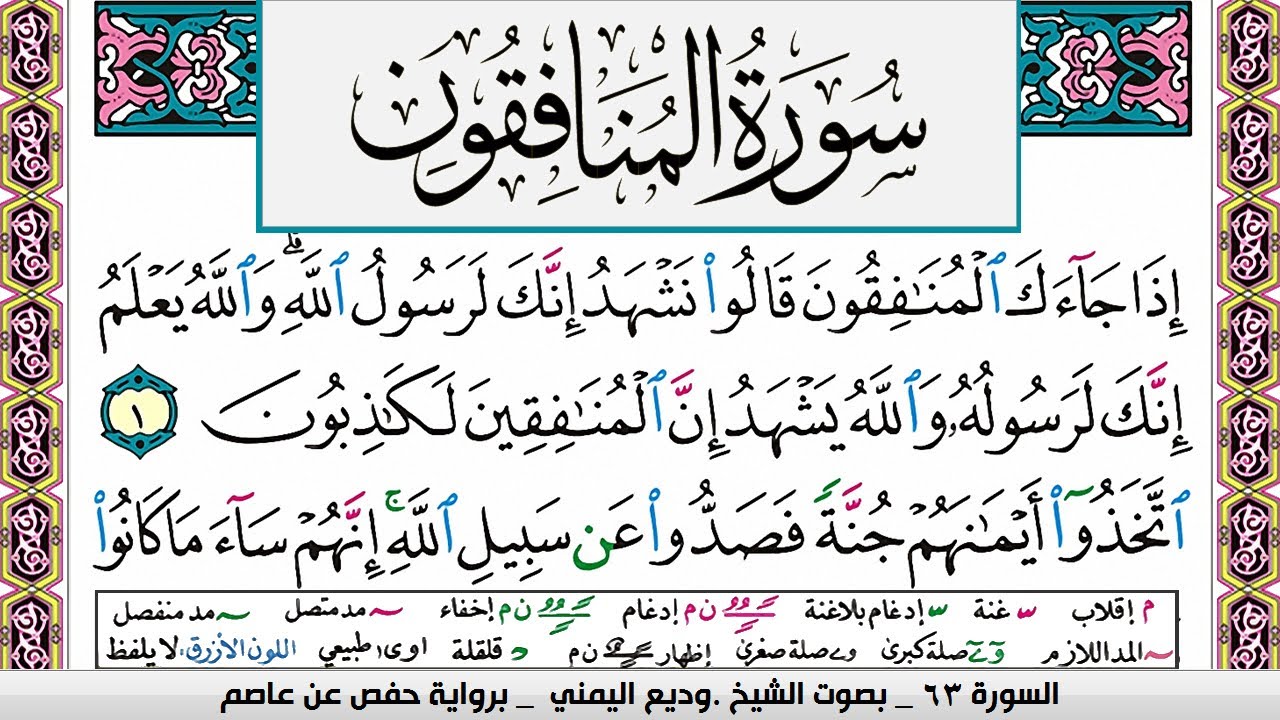 سُورَةُ المُنَافِقُونَ
إِذَا جَآءَكَ ٱلْمُنَٰفِقُونَ قَالُوا۟ نَشْهَدُ إِنَّكَ لَرَسُولُ ٱللَّهِ ۗ وَٱللَّهُ يَعْلَمُ
إِنَّكَ لَرَسُولُهُۥ وَٱللَّهُ يَشْهَدُ إِنَّ ٱلْمُنَٰفِقِينَ لَكَٰذِبُونَ ١
ٱتَّخَذُوٓا۟ أَيْمَٰنَهُمْ جُنَّةً فَصَدُّوا۟ عَن سَبِيلِ ٱللَّهِ ۚ إِنَّهُمْ سَآءَ مَا كَانُوا۟
م إقلاب غنة إدغام بلاغنة ن م إدغام ن م إخفاء مد متصل مد منفصل
المد اللازم صلة كبرى صلة صغرى إظهار ن م قلقلة اوى طبيعي اللون الأزرق: لا يلفظ
السورة ٦٣ _ بصوت الشيخ .وديع اليمني _ برواية حفص عن عاصم